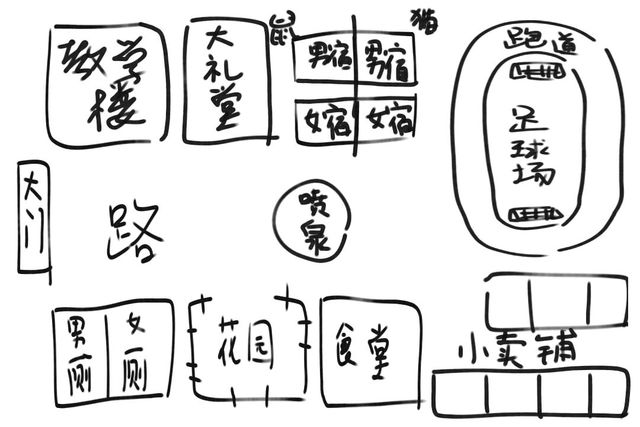 教学楼
大礼堂
鼠
男宿 男宿
女宿 女宿
猫
跑道
足球场
大门
路
喷泉
男厕
女厕
花园
食堂
小卖铺